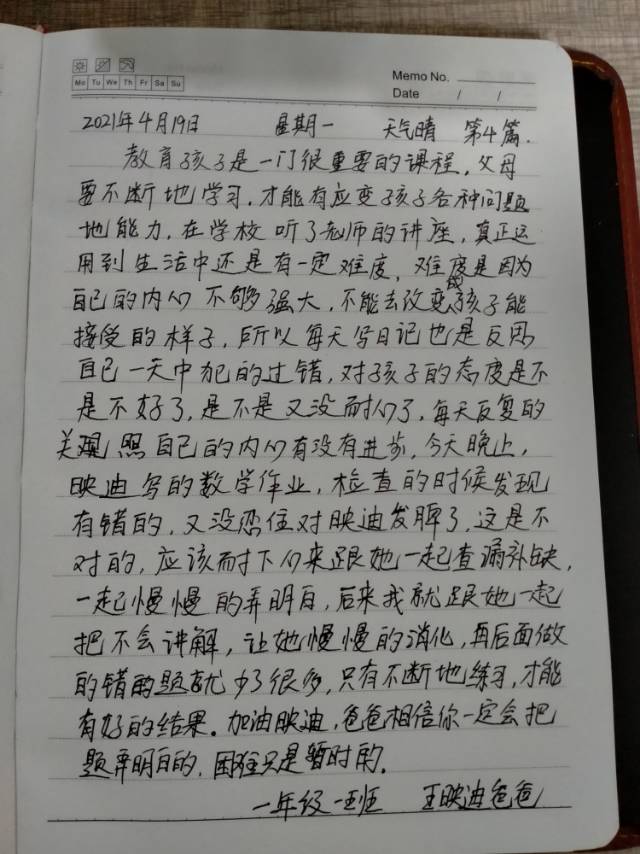 Mo Tu We Th Fr Sa Su
Memo No.
Date / /
2021年4月19日 星期一 天气晴 第4篇.
教育孩子是一门很重要的课程，父母
要不断地学习，才能有应变孩子各种问题
地能力，在学校听了老师的讲座，真正运
用到生活中还是有一定难度，难度是因为
自己的内心不够强大，不能去改变成孩子能
接受的样子，所以每天写日记也是反思
自己一天中犯的过错，对孩子的态度是不
是不好了，是不是又没耐心了，每天反复的
关观照自己的内心有没有进步，今天晚上，
映迪写的数学作业，检查的时候发现
有错的，又没忍住对映迪发脾了，这是不
对的，应该耐下心来跟她一起查漏补缺，
一起慢慢的弄明白，后来我就跟她一起
把不会讲解，让她慢慢的消化，再后面做
的错的题就少了很多，只有不断地练习，才能
有好的结果。加油映迪，爸爸相信你一定会把
题弄明白的，困难只是暂时的。
一年级一班 王映迪爸爸